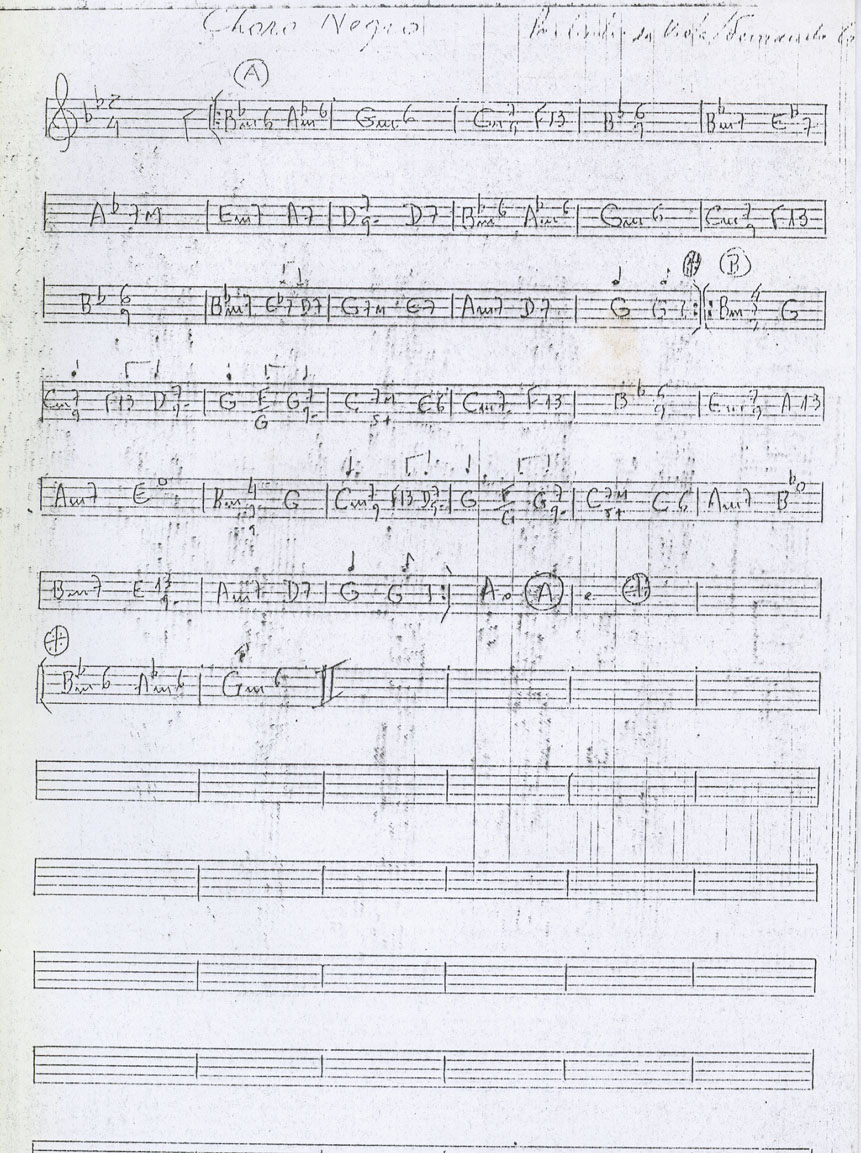 Choro Negro Paulinho da Viola / Fernando Co
A
♭♭ 2/4 B♭m6 A♭m6 | Gm6 | Cm7/9 F13 | B♭6/9 | B♭m7 E♭7
A♭7M | Em7 A7 | D7/9- D7 | B♭m6 A♭m6 | Gm6 | Cm7/9 F13
B
B♭6/9 | B♭m7 E♭7 D7 | G7M E7 | Am7 D7 | G G :|: Bm4/7 G
Cm7/9 F13 D7/9- | G F/G G7/9- | C7M/5+ C6 | Cm7 F13 | B♭6/9 | Em7/9 A13
Am7 E° | Bm4/7/9 G | Cm7/9 F13 D7/9- | G F/G G7/9- | C7M/5+ C6 | Am7 B♭°
Bm7 E13/9- | Am7 D7 | G G :| Ao A | e
B♭m6 A♭m6 | Gm6